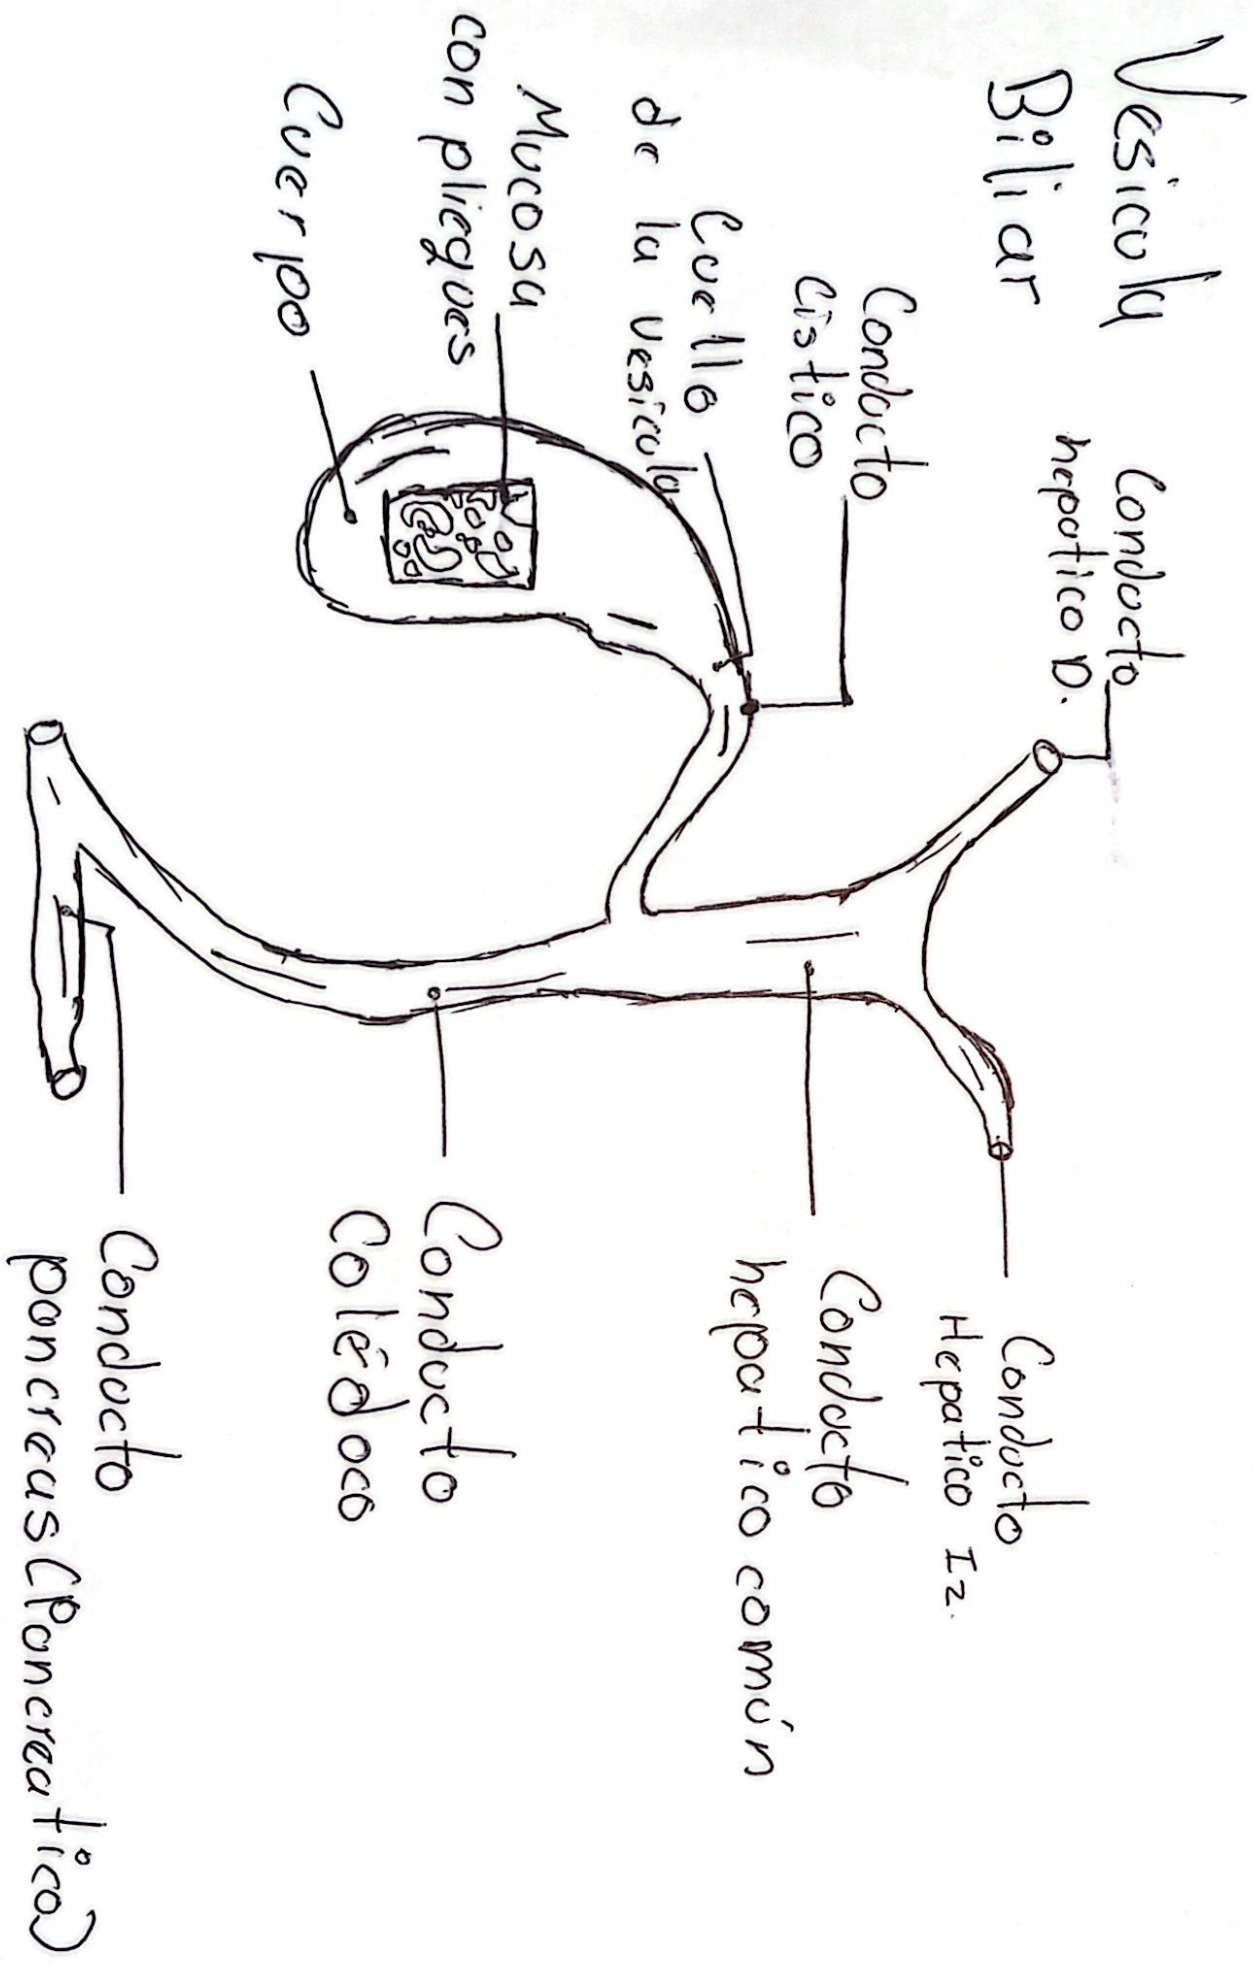 Vesícula
Biliar
Conducto
hepatico D.
Conducto
Cístico
Cuello
de la vesícula
Mucosa
con pliegues
Cuerpo
Conducto
Hepatico Iz.
Conducto
hepatico común
Conducto
Colédoco
Conducto
pancreas (Pancreatico)